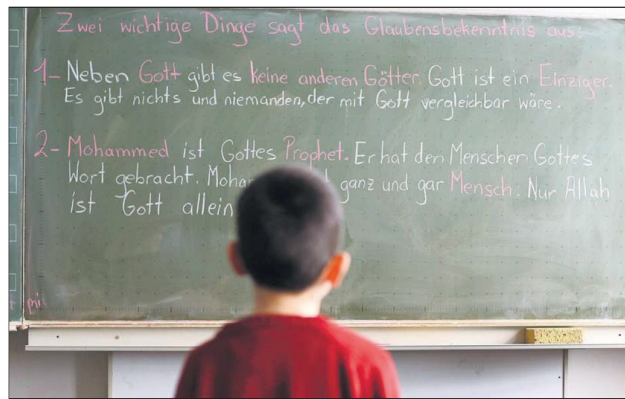 Zwei wichtige Dinge sagt das Glaubensbekenntnis aus:
1- Neben Gott gibt es keine anderen Götter. Gott ist ein Einziger.
Es gibt nichts und niemanden, der mit Gott vergleichbar wäre.
2- Mohammed ist Gottes Prophet. Er hat den Menschen Gottes
Wort gebracht. ganz und gar Mensch: Nur Allah
ist Gott allein